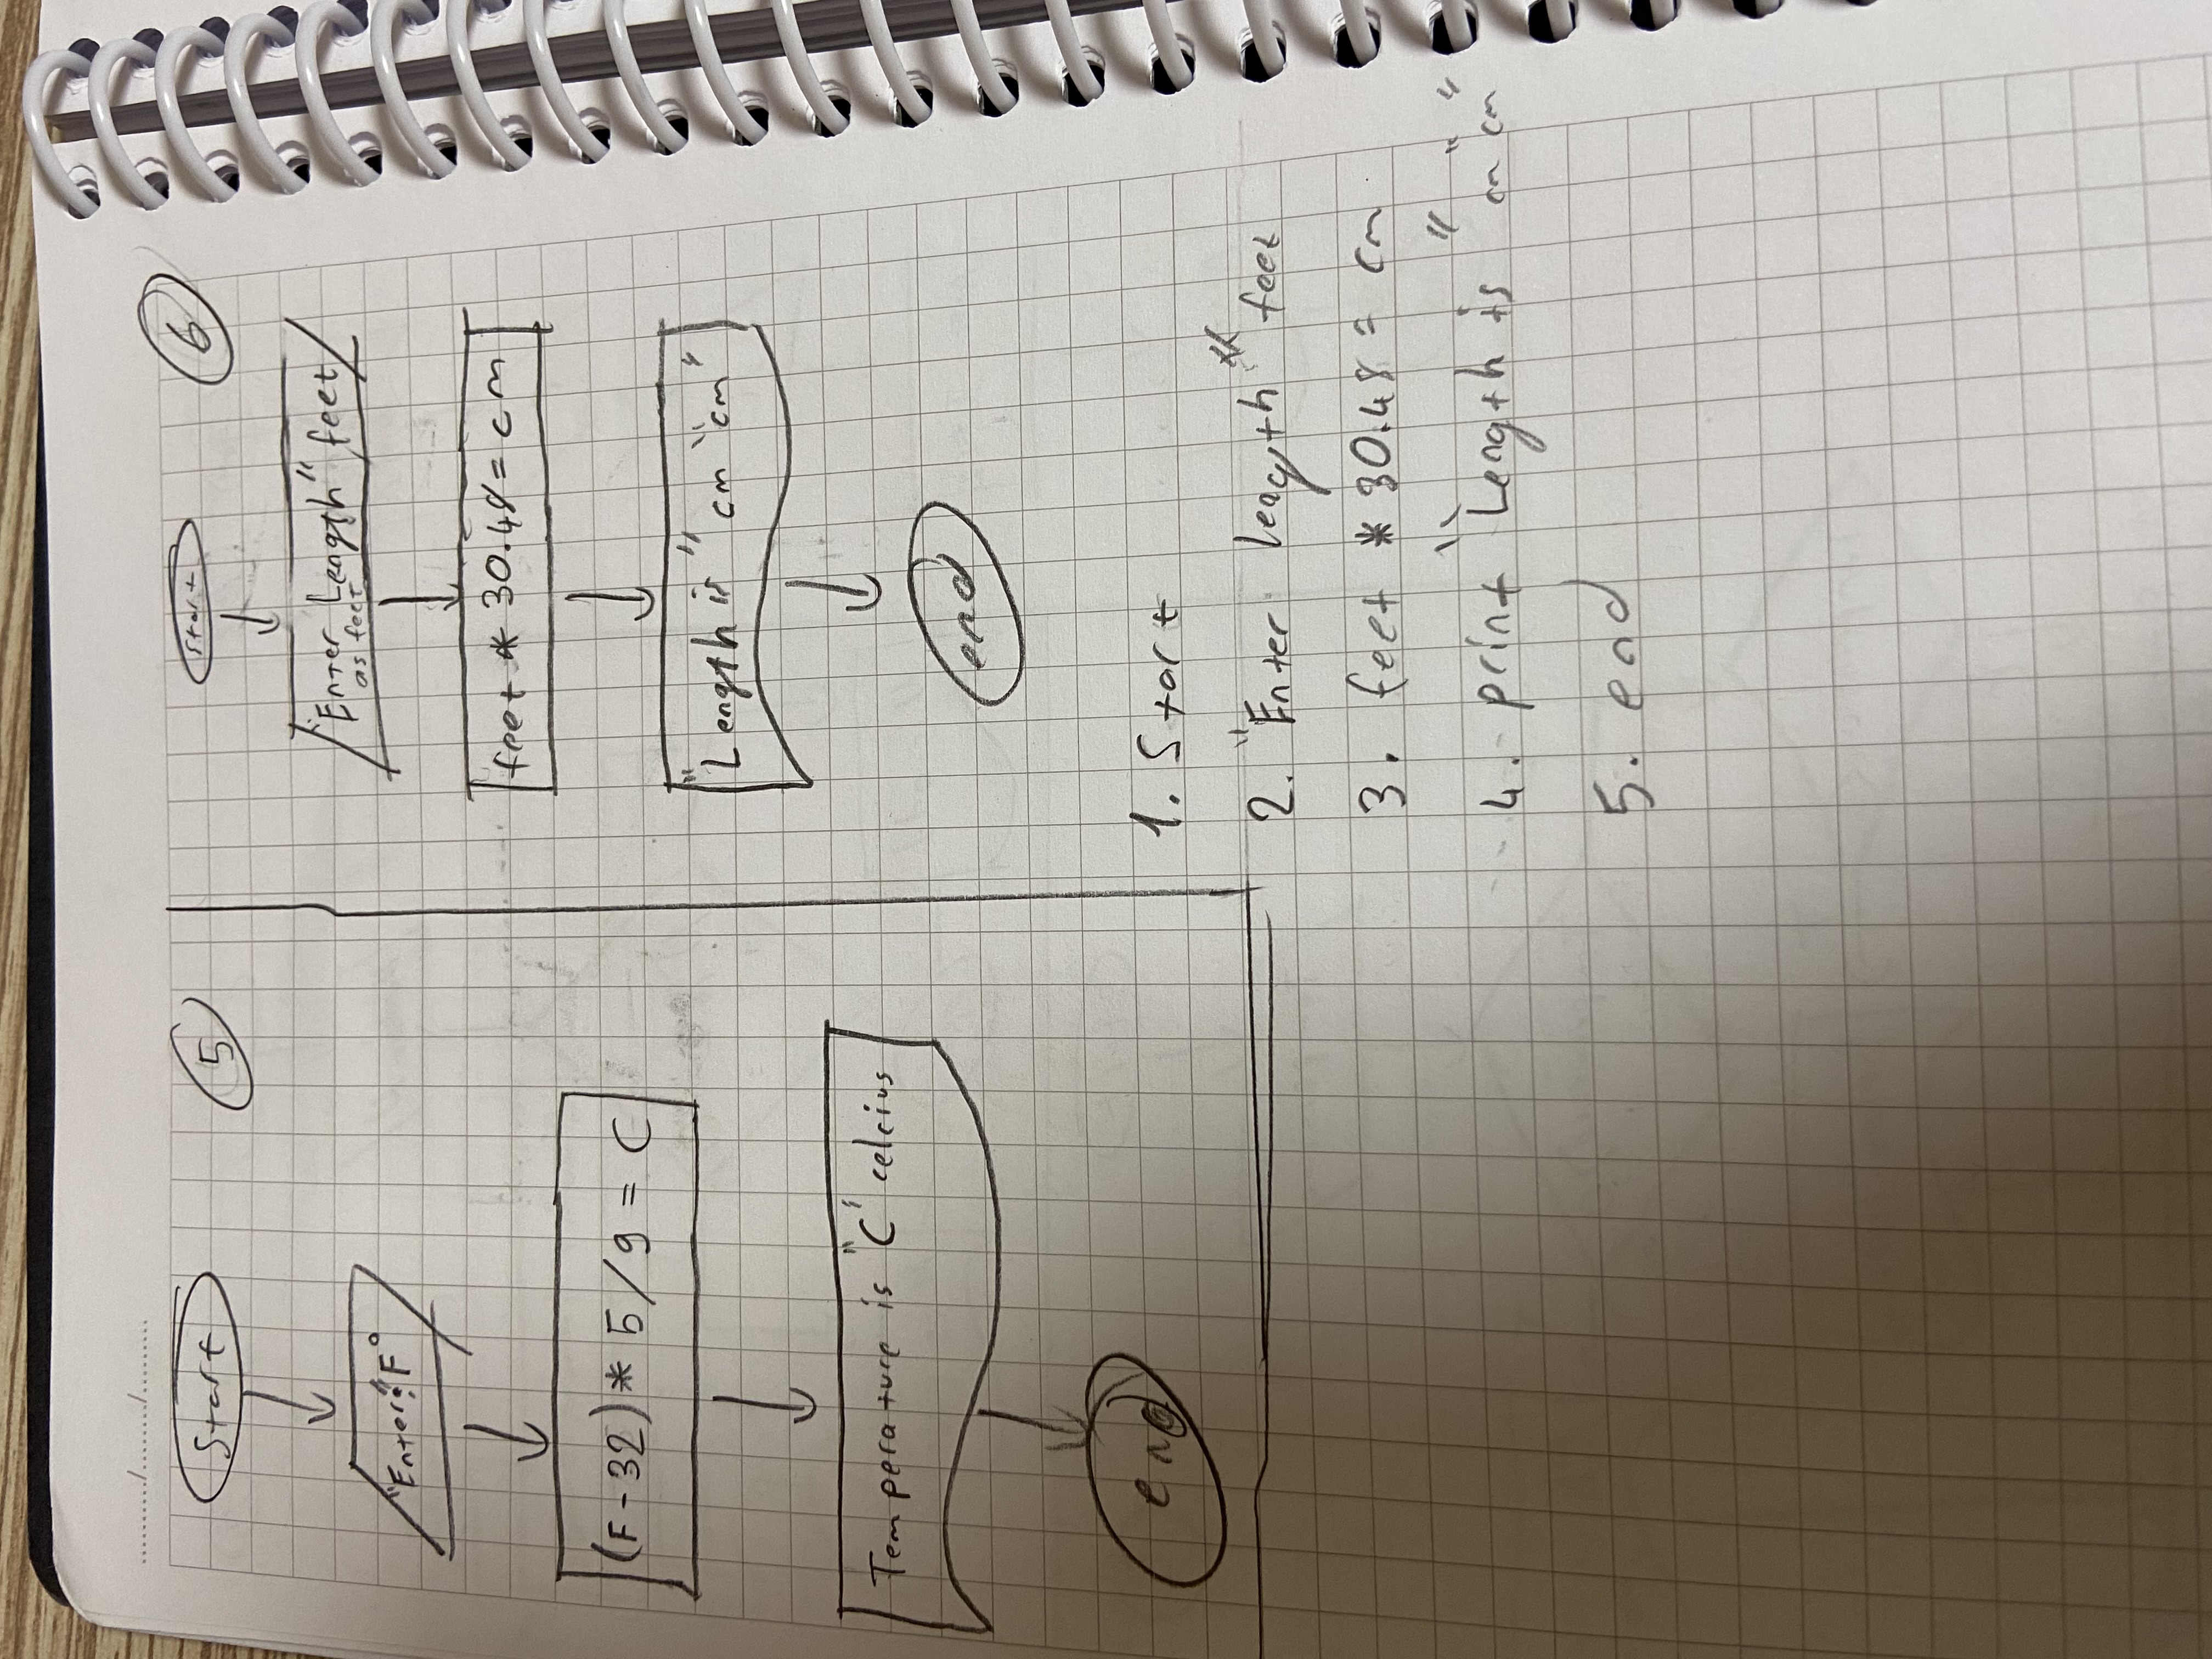 ........../........./.........
Start
5
"Enter:" F°
(F-32) * 5/9 = C
Temperature is "C" celcius
end
6
Start
"Enter Length" feet
as feet
feet * 30.48 = cm
"Length is" cm "cm"
end
1. Start
2. "Enter length" feet
3. feet * 30.48 = cm
4. print "Length is" cm "cm"
5. end